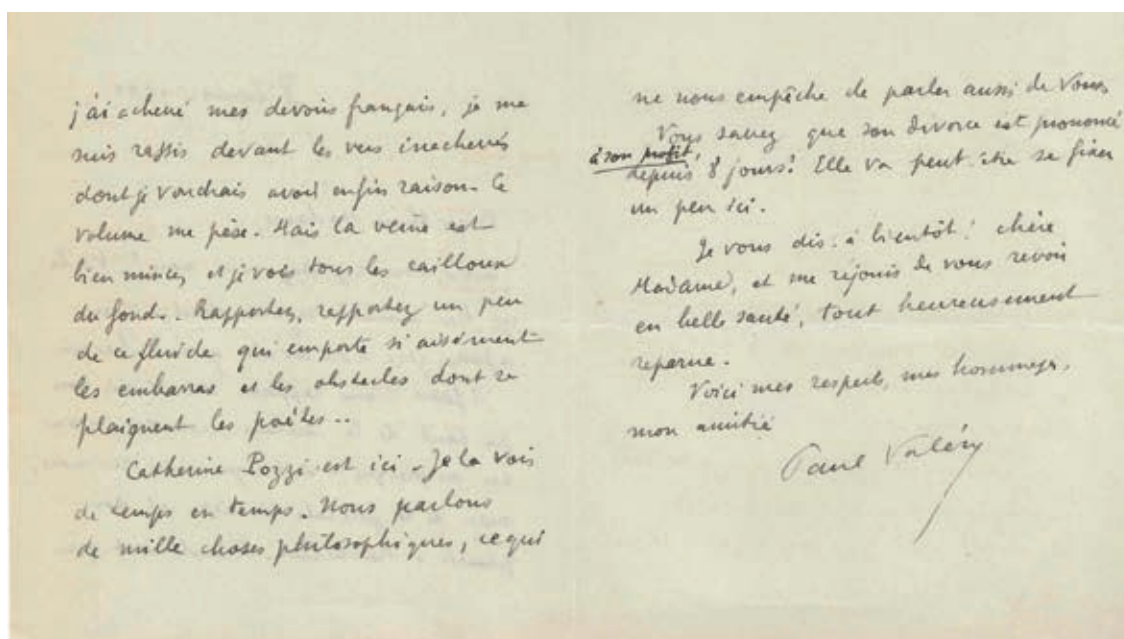 j'ai achevé mes devoirs français, je me
suis rassis devant les vers inachevés
dont je voudrais avoir enfin raison. Ce
volume me pèse. Mais la veine est
bien mince, et je vois tous les cailloux
du fond.. Rapportez, rapportez un peu
de ce fluide qui emporte si aisément
les embarras et les obstacles dont se
plaignent les poètes..
Catherine Pozzi est ici. Je la vois
de temps en temps. Nous parlons
de mille choses philosophiques, ce qui
ne nous empêche de parler aussi de Vous.
Vous savez que son divorce est prononcé
à son profit,
depuis 8 jours! Elle va peut-être se fixer
un peu ici.
Je vous dis : à bientôt! chère
Madame, et me réjouis de vous revoir
en belle santé, tout heureusement
reparue.
Voici mes respects, mes hommages,
mon amitié
Paul Valéry